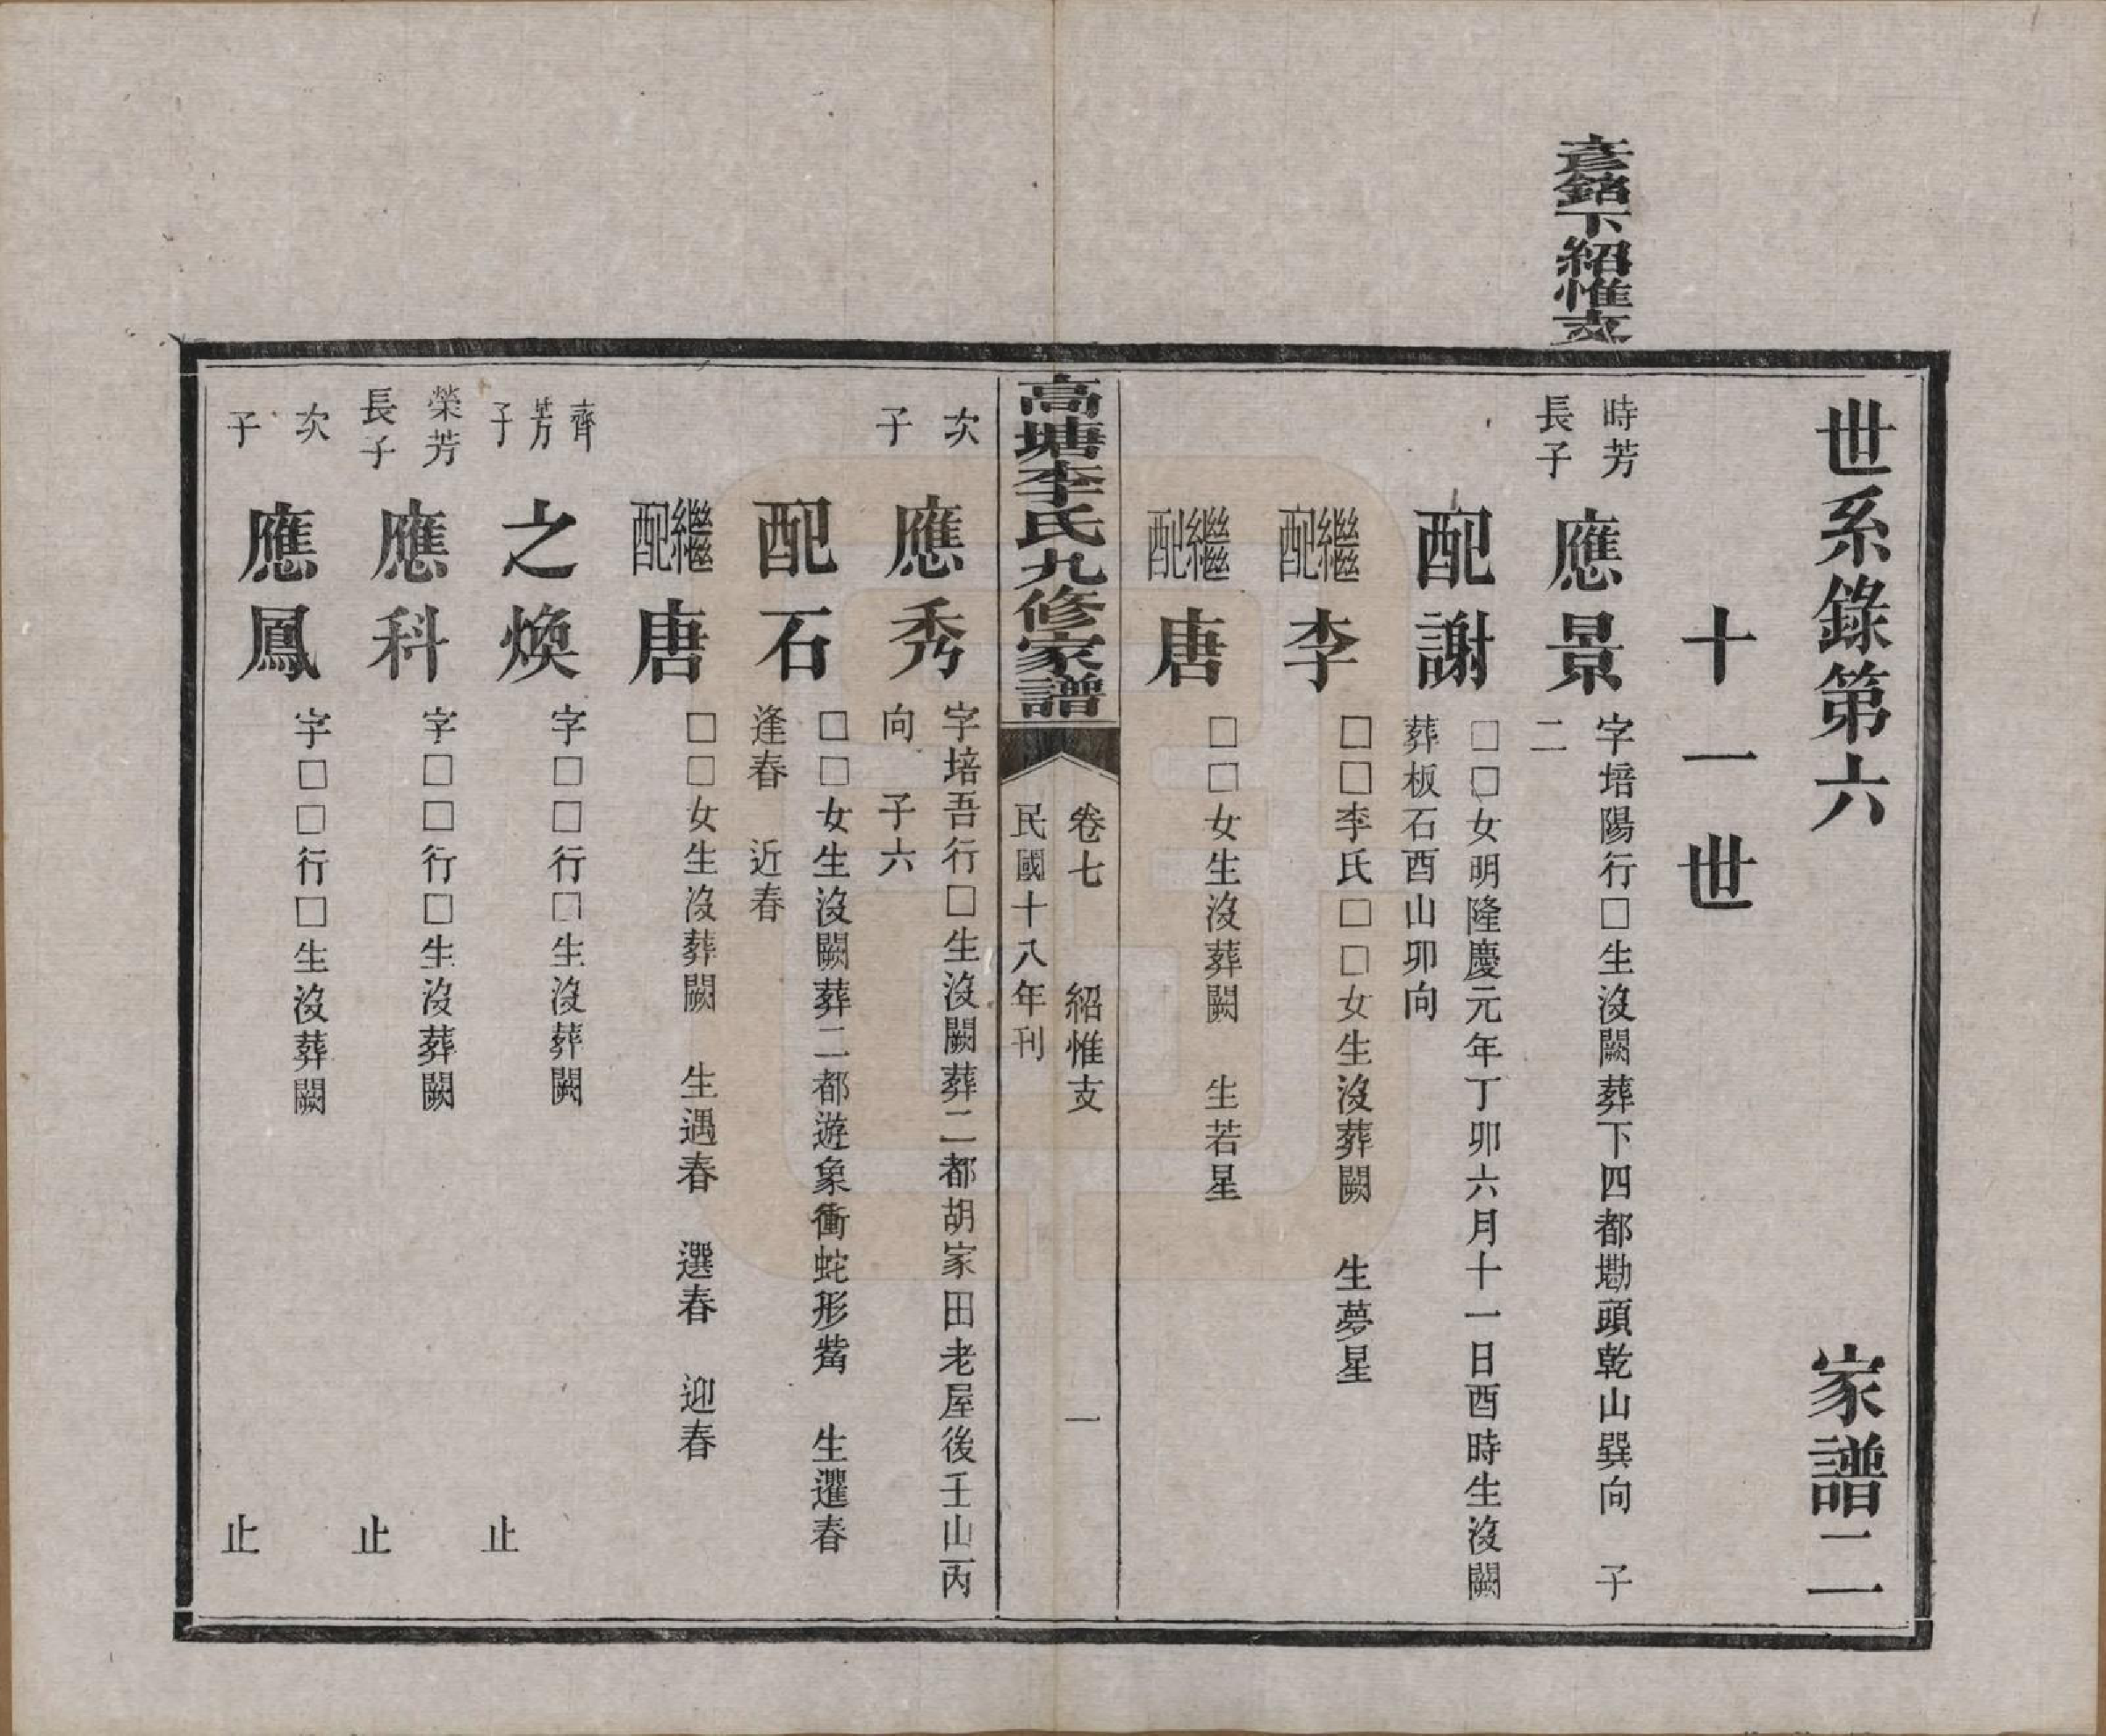 彥銘下紹惟支
世系錄第六 家譜二
十一世
時芳
長子
應景
字培陽行□生沒闕葬下四都墈頭乾山巽向 子
二
配謝
□□女明隆慶元年丁卯六月十一日酉時生沒闕
葬板石酉山卯向
繼配李
□□李氏□□女生沒葬闕 生夢星
繼配唐
□□女生沒葬闕 生若星
高塘李氏九修家譜
卷七 紹惟支 一
民國十八年刊
次
子
應秀
字培吾行□生沒闕葬二都胡家田老屋後壬山丙
向 子六
配石
□□女生沒闕葬二都遊象衝蛇形觜 生暹春
逢春 近春
繼配唐
□□女生沒葬闕 生遇春 選春 迎春
齊
芳
子
之煥
字□□行□生沒葬闕
止
榮芳
長子
應科
字□□行□生沒葬闕
止
次
子
應鳳
字□□行□生沒葬闕
止